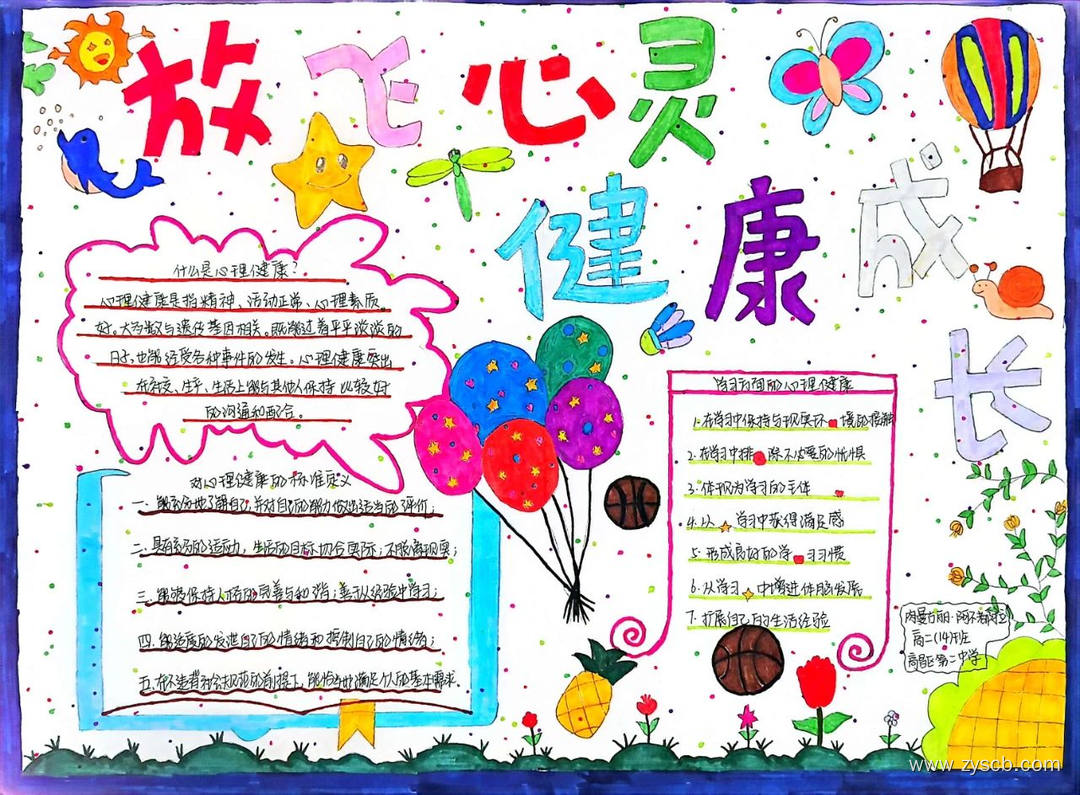 放飞心灵
健康成长
什么是心理健康?
心理健康是指精神、活动正常、心理素质
好。大多数与遗传基因相关。既能过着平平淡淡的
日子,也能经受各种事件的发生。心理健康突出
在社交、生产、生活上能与其他人保持比较好
的沟通和配合。
对心理健康的标准定义
一、能充分地了解自己,并对自己的能力做出适当的评价;
二、具有充分的适应力,生活的目标切合实际;不脱离现实;
三、能够保持人格的完善与和谐;善于从经验中学习;
四、能适度的发泄自己的情绪和控制自己的情绪;
五、在不违背社会规范的前提下,能恰当地满足个人的基本需求.
学习方面的心理健康
1.在学习中保持与现实环境的接触
2.在学习中排除不必要的忧惧
3.体现为学习的主体
4.从学习中获得满足感
5.形成良好的学习习惯
6.从学习中增进体脑发展
7.扩展自己的生活经验
高二(14)班
高昌区第二中学
www.zyscb.com